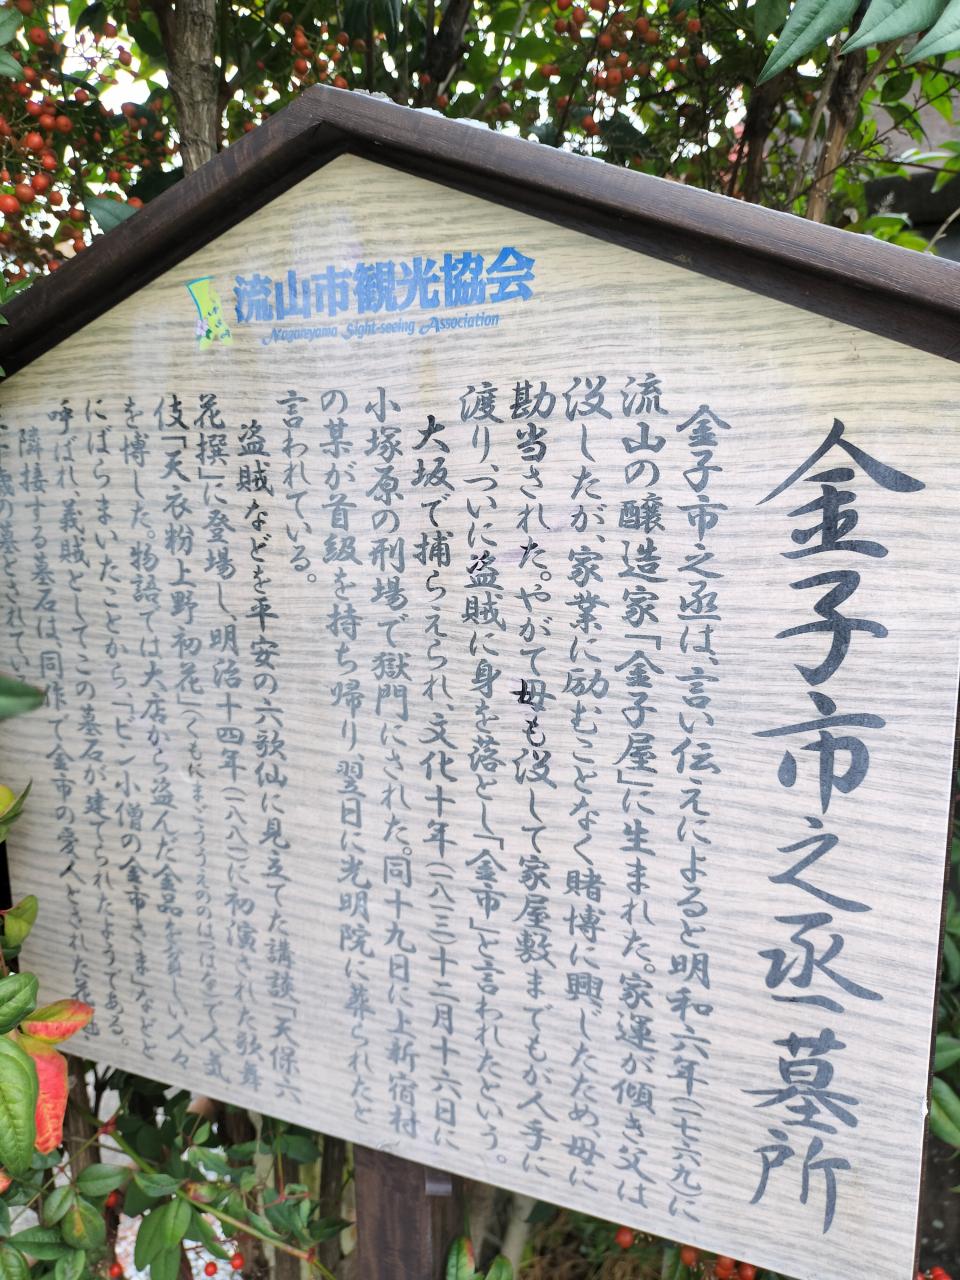 流山市観光協会
Nagareyama Sight-seeing Association
金子市之丞墓所
金子市之丞は、言い伝えによると明和六年(一七六九)に
流山の醸造家「金子屋」に生まれた。家運が傾き父は
没したが、家業に励むことなく賭博に興じたため、母に
勘当された。やがて母も没して家屋敷までもが人手に
渡り、ついに盗賊に身を落とし「金市」と言われたという。
大坂で捕らえられ、文化十年(一八一三)十二月十六日に
小塚原の刑場で獄門にされた。同十九日に上新宿村
の某が首級を持ち帰り、翌日に光明院に葬られたと
言われている。
盗賊などを平安の六歌仙に見立てた講談「天保六
花撰」に登場し、明治十四年(一八八一)に初演された歌舞
伎「天衣粉上野初花」(くもにまごううえののはつはな)で人気
を博した。物語では大店から盗んだ金品を貧しい人々
にばらまいたことから、「ビン小僧の金市さま」などと
呼ばれ、義賊としてこの墓石が建てられたようである。
隣接する墓石は、同作で金市の愛人とされた花魁・
の墓とされてい